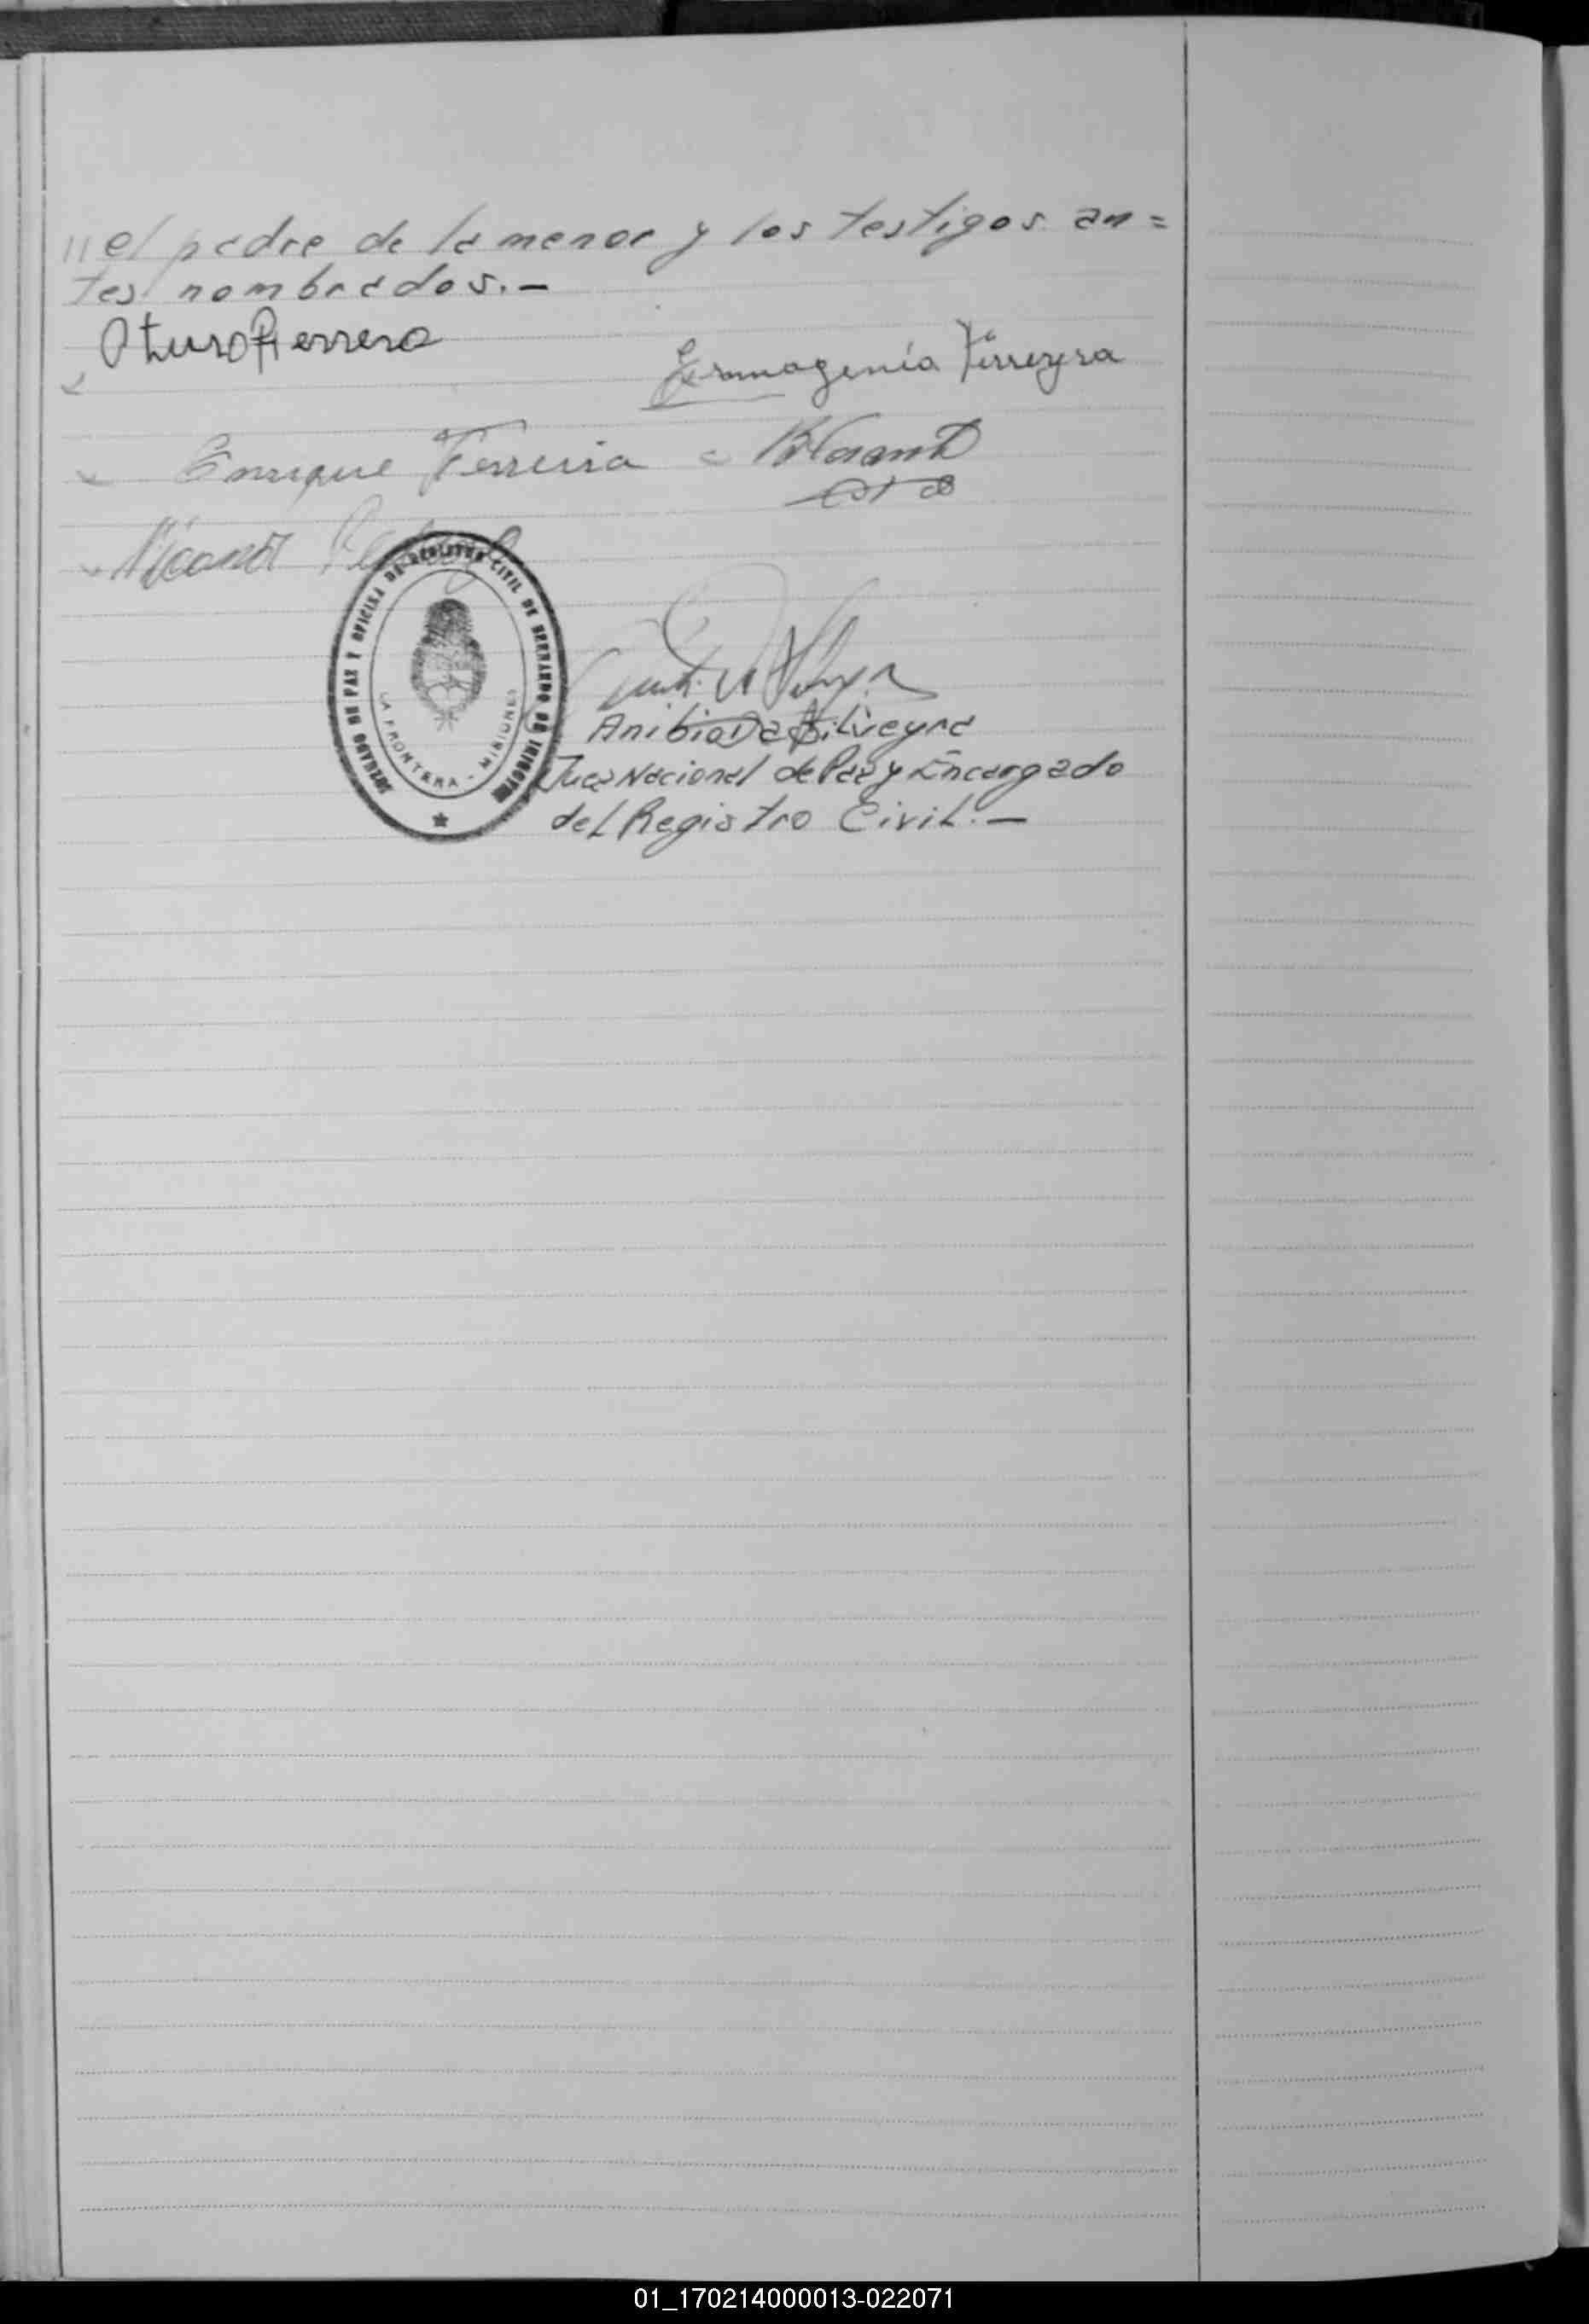 // el padre de la menor y los testigos an=
tes nombrados.-
Oturo Fierrero
Ermogenia Firreyra
Enrique Ferreira
Nicanor
JUZGADO DE PAZ Y OFICINA DE REGISTRO CIVIL DE BERNARDO DE IRIGOYEN
LA FRONTERA - MISIONES
Anibio Da Silveyra
Juez Nacional de Paz y Encargado
del Registro Civil.-
01_170214000013-022071